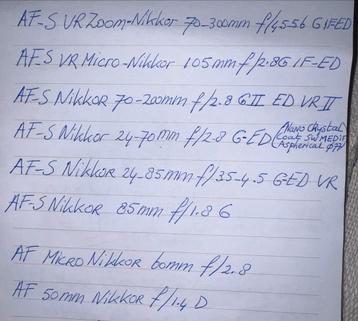 AF-S VR Zoom-Nikkor 70-300mm f/4.5-5.6 G IFED
AF-S VR Micro-Nikkor 105mm f/2.8G IF-ED
AF-S Nikkor 70-200mm f/2.8 GII ED VR II
AF-S Nikkor 24-70mm f/2.8 G-ED (Nano Crystal
Coat SWM ED IF
Aspherical Ø77)
AF-S Nikkor 24-85mm f/3.5-4.5 G-ED VR
AF-S Nikkor 85mm f/1.8 G
AF Micro Nikkor 60mm f/2.8
AF 50mm Nikkor f/1.4 D